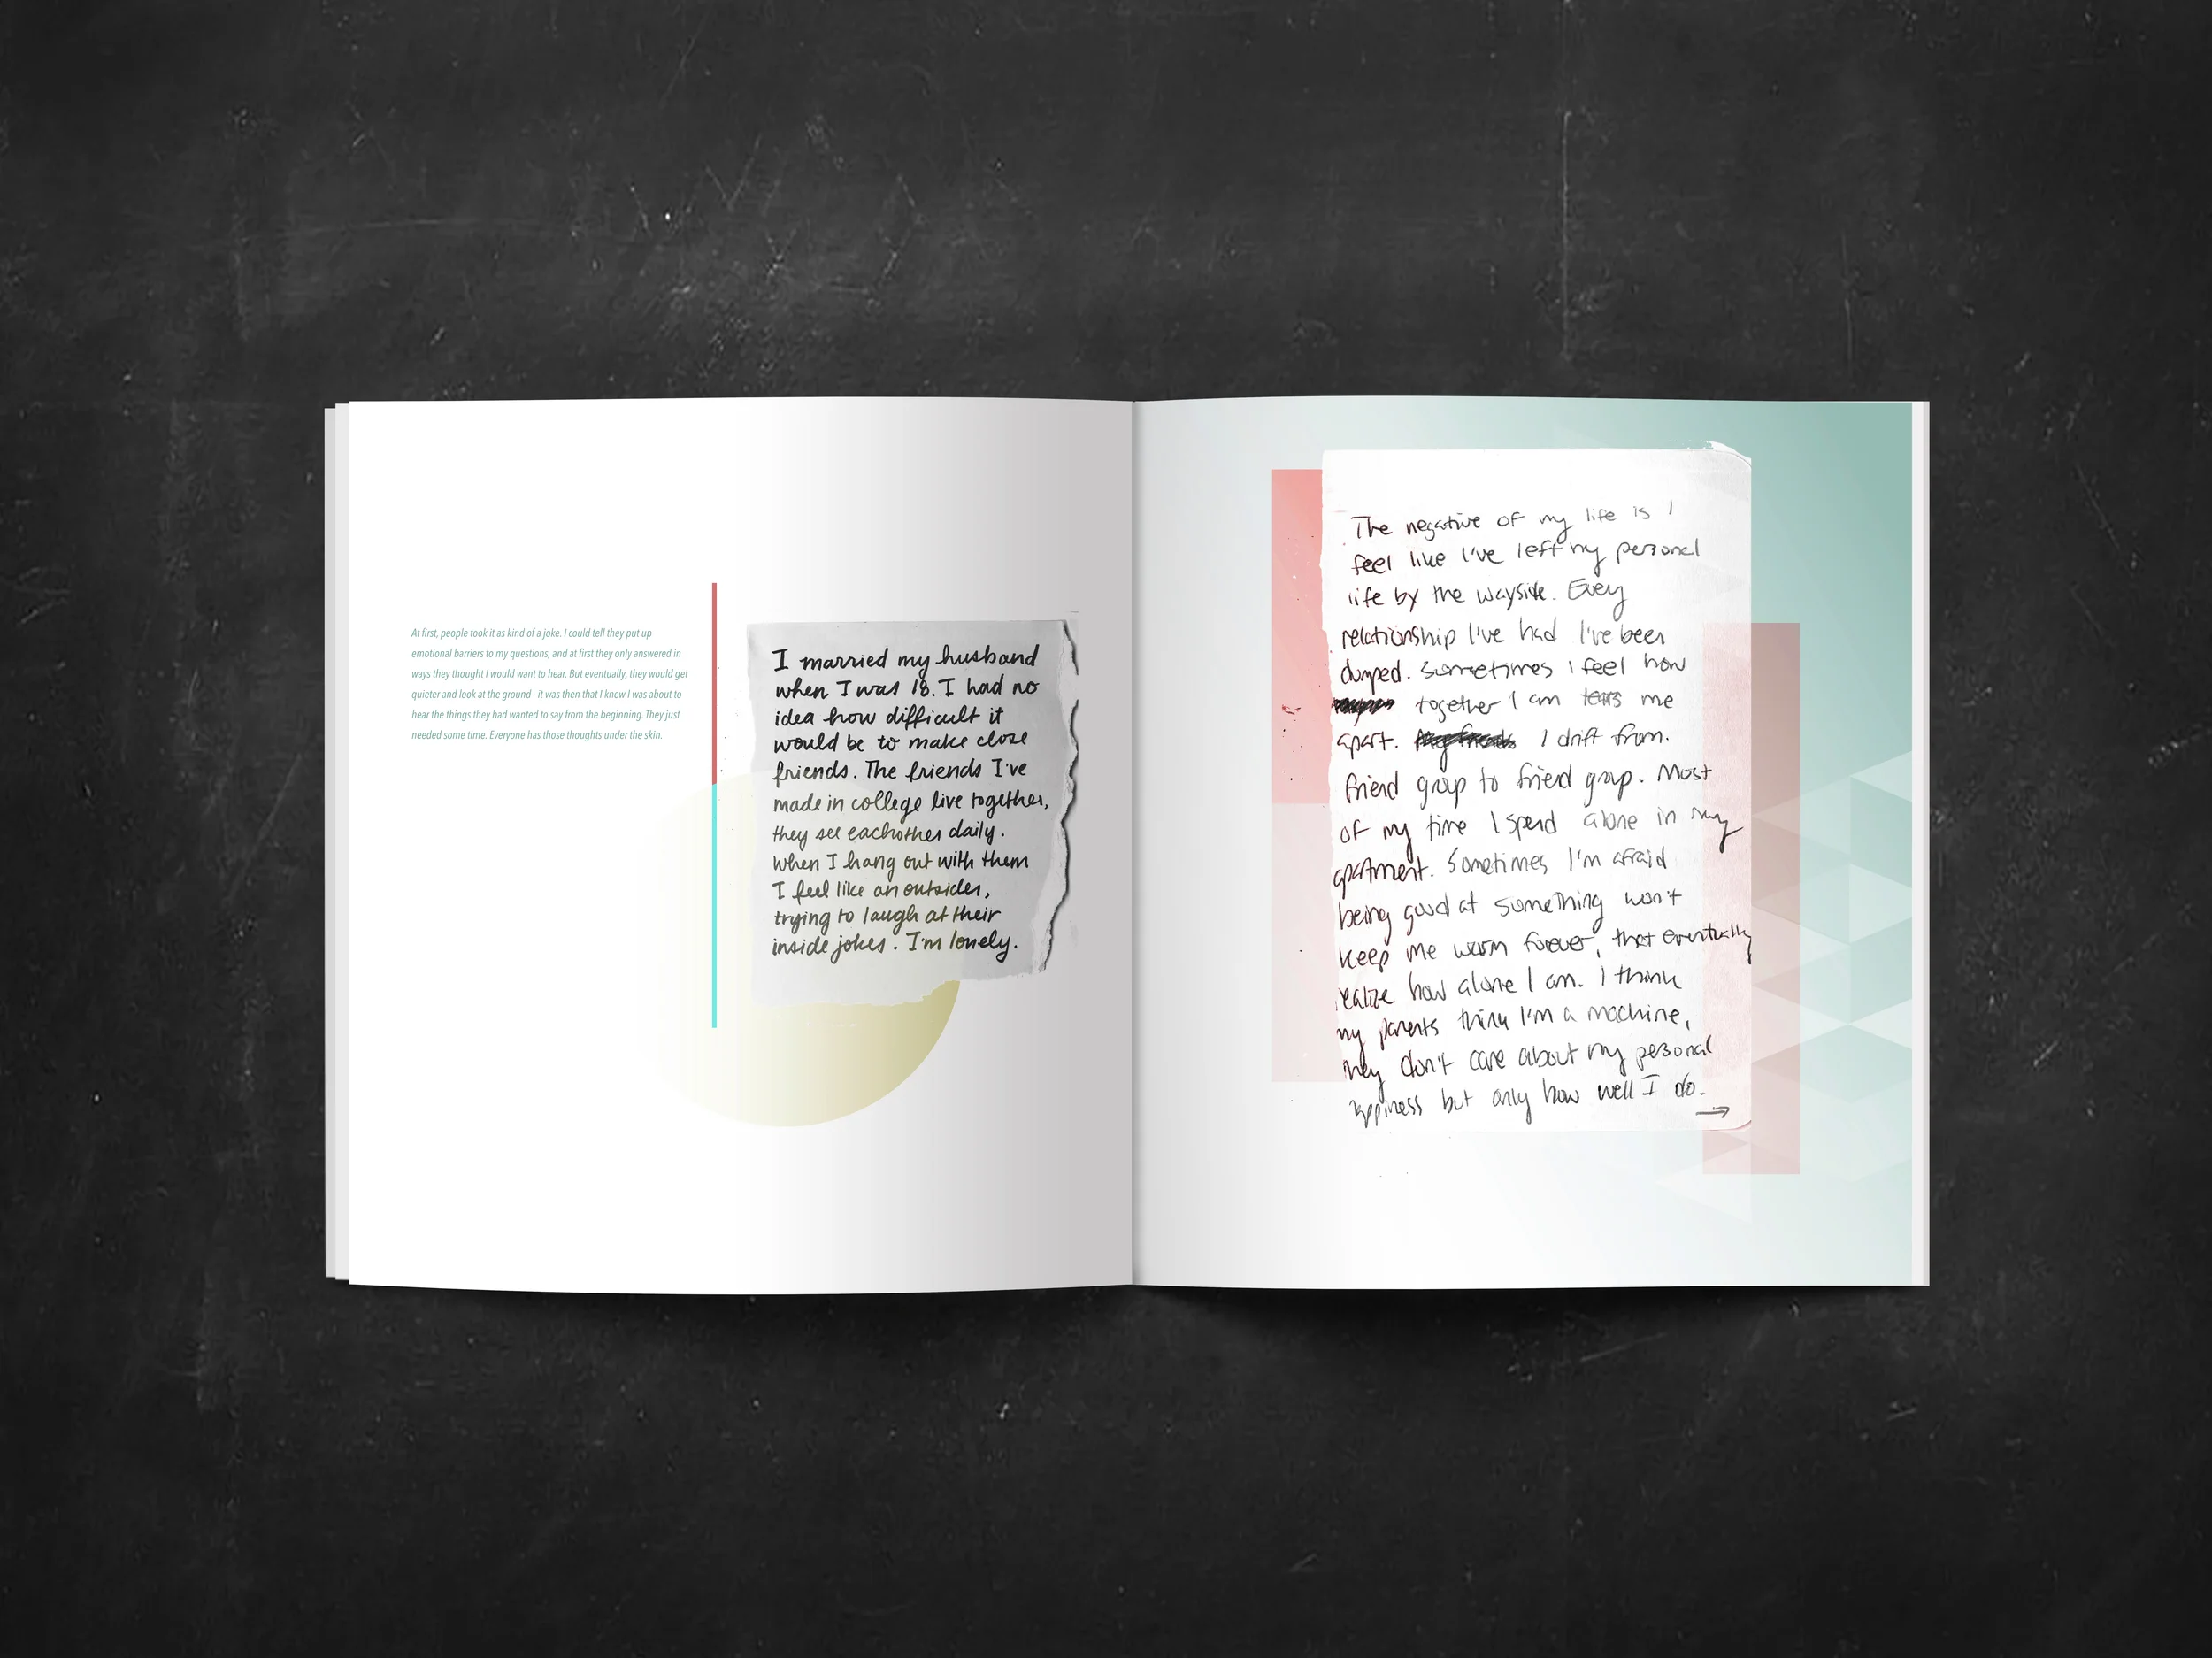 At first, people took it as kind of a joke. I could tell they put up
emotional barriers to my questions, and at first they only answered in
ways they thought I would want to hear. But eventually, they would get
quieter and look at the ground - it was then that I knew I was about to
hear the things they had wanted to say from the beginning. They just
needed some time. Everyone has those thoughts under the skin.
I married my husband
when I was 18. I had no
idea how difficult it
would be to make close
friends. The friends I've
made in college live together,
they see eachother daily.
when I hang out with them
I feel like an outsider,
trying to laugh at their
inside jokes. I'm lonely.
The negative of my life is I
feel like I've left my personal
life by the wayside. Every
relationship I've had I've been
dumped. Sometimes I feel how
together I am tears me
apart. I drift from
friend group to friend group. Most
of my time I spend alone in my
apartment. Sometimes I'm afraid
being good at something won't
keep me warm forever, that eventually
realize how alone I am. I think
my parents think I'm a machine,
they don't care about my personal
happiness but only how well I do.
→